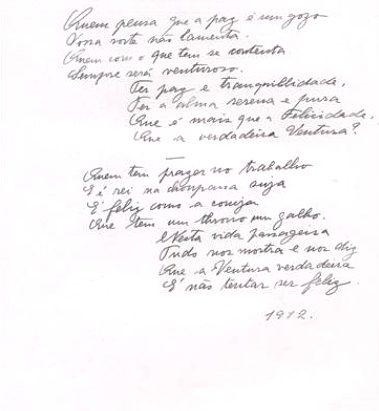 Quem pensa que a paz é um gozo
Vossa sorte não lamenta.
Quem com o que tem se contenta
Sempre será venturoso.
Ter paz e tranquillidade,
Ter a alma serena e pura
Que é mais que a Felicidade,
Que a verdadeira Ventura?
Quem tem prazer no trabalho
E é rei na choupana suja
É feliz como a coruja
Que tem um throno um galho.
Nesta vida passageira
Tudo nos mostra e nos diz
Que a Ventura verdadeira
É não tentar ser feliz.
1912.